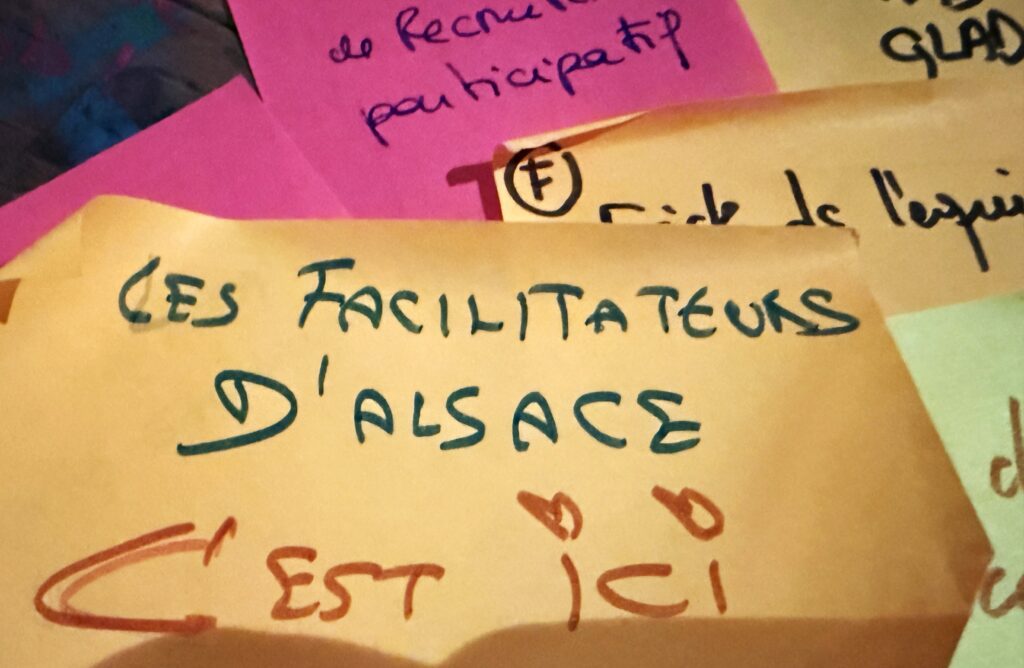 de Recrute
participatif
GLAD
F
de l'équi
LES FACILITATEURS
D'ALSACE
C'EST ICI